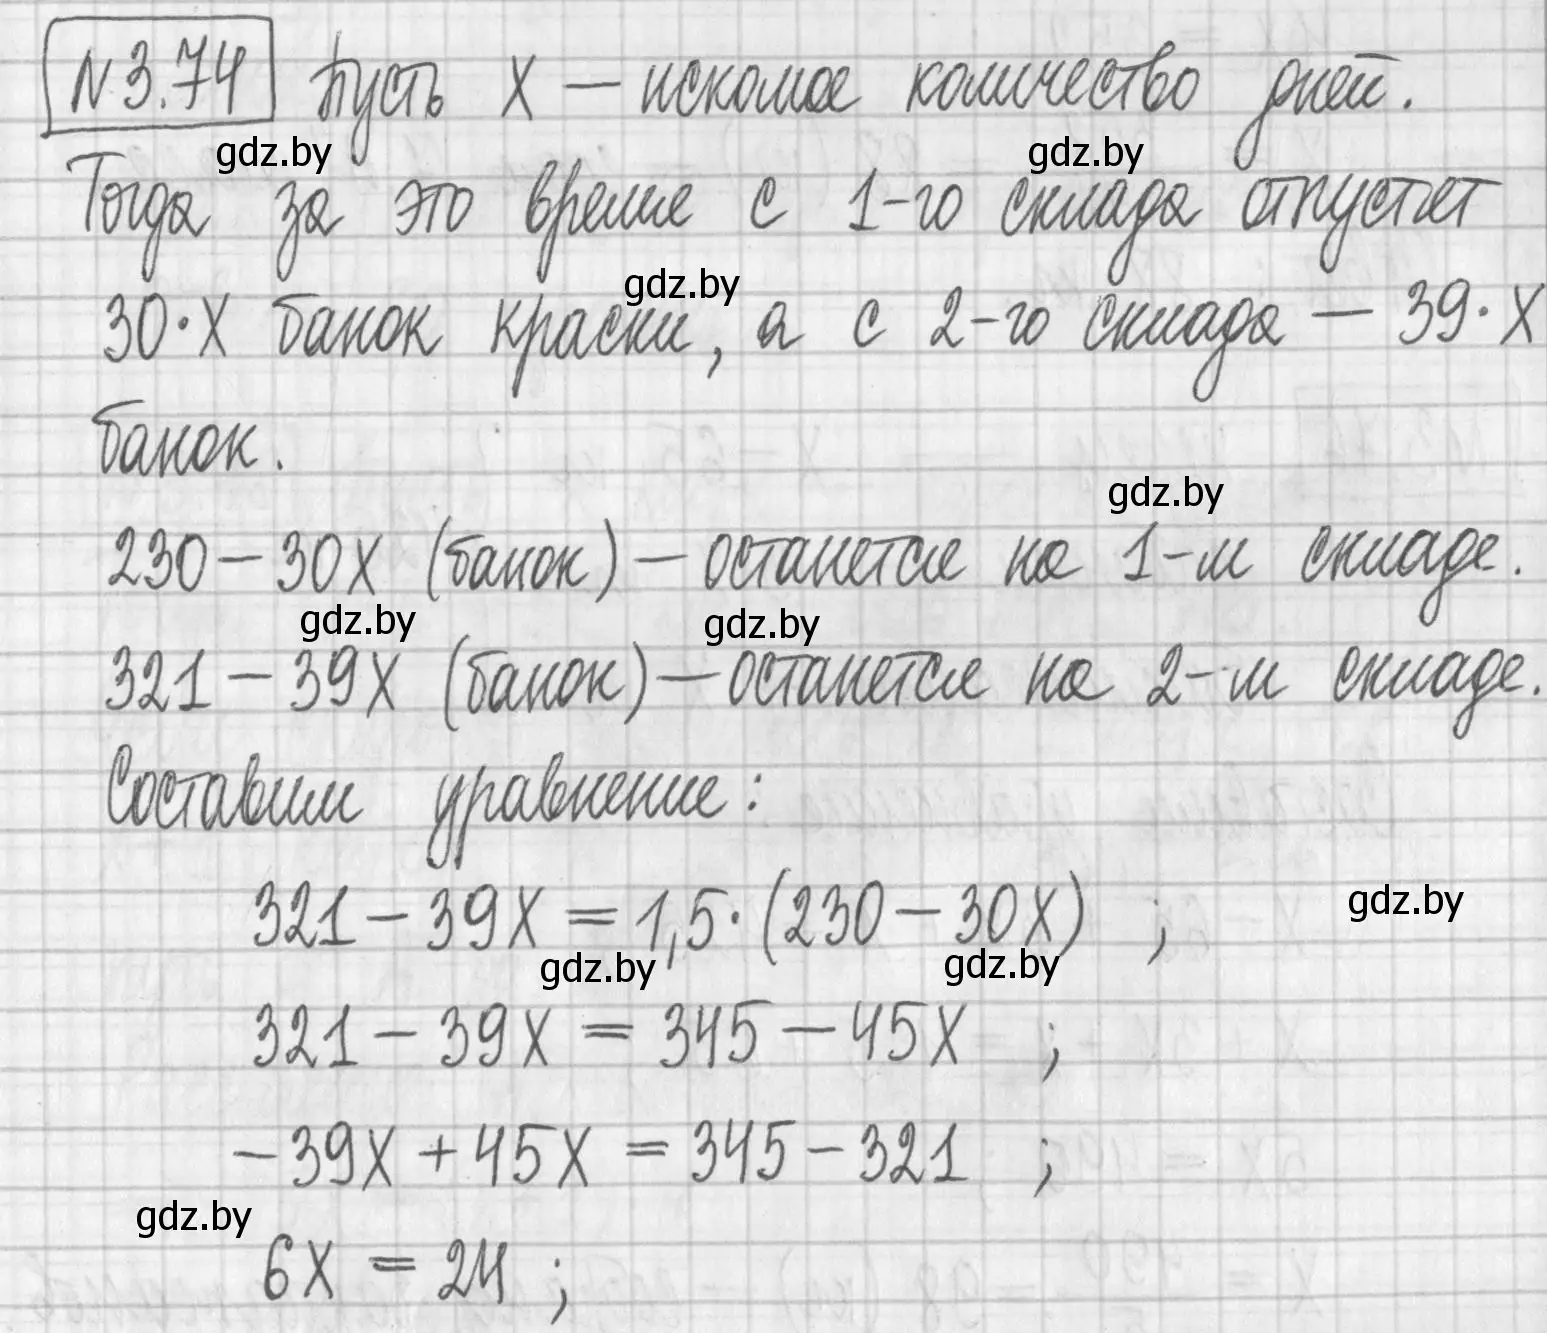 №3.74 Пусть X — искомое количество дней.
gdz.by gdz.by
Тогда за это время с 1-го склада отпустят
gdz.by
30·X банок краски, а с 2-го склада — 39·X
банок.
gdz.by
230 - 30X (банок) — останется на 1-м складе.
gdz.by gdz.by
321 - 39X (банок) — останется на 2-м складе.
Составим уравнение:
321 - 39X = 1,5·(230 - 30X) ;
gdz.by
gdz.by gdz.by
321 - 39X = 345 - 45X ;
-39X + 45X = 345 - 321 ;
gdz.by
6X = 24 ;